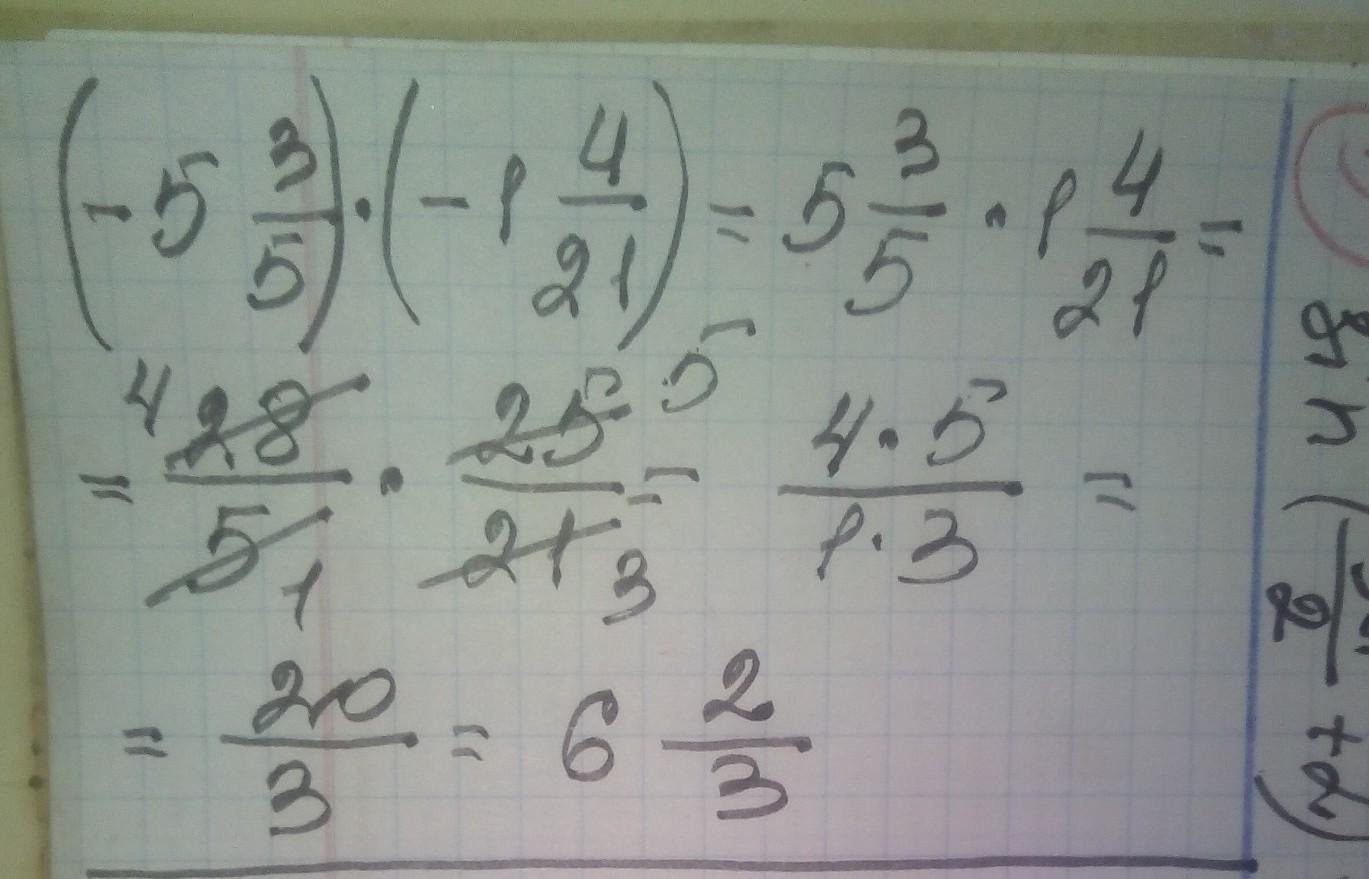 (-5 3/5) · (-1 4/21) = 5 3/5 · 1 4/21 =
= 4 28/5 1 · 25/21 5 3 = 4·5/1·3 =
= 20/3 = 6 2/3